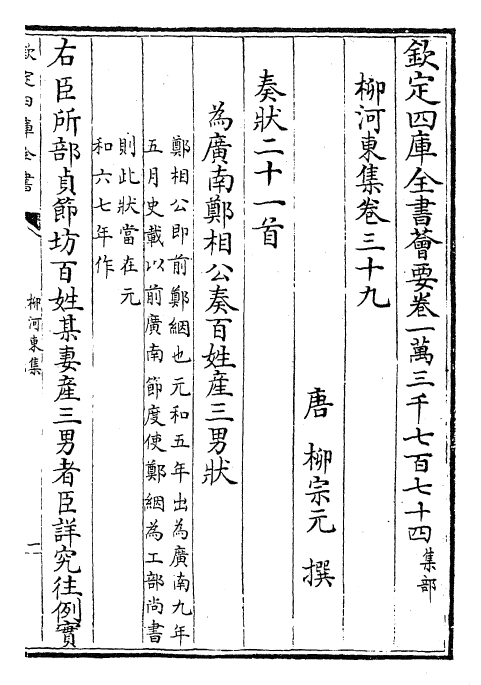 欽定四庫全書薈要卷一萬三千七百七十四集部
柳河東集卷三十九
唐 柳宗元 撰
奏狀二十一首
為廣南鄭相公奏百姓産三男狀
鄭相公即前鄭絪也元和五年出為廣南九年
五月史載以前廣南節度使鄭絪為工部尚書
則此狀當在元
和六七年作
右臣所部貞節坊百姓某妻産三男者臣詳究往例實
欽定四庫全書
柳河東集
一